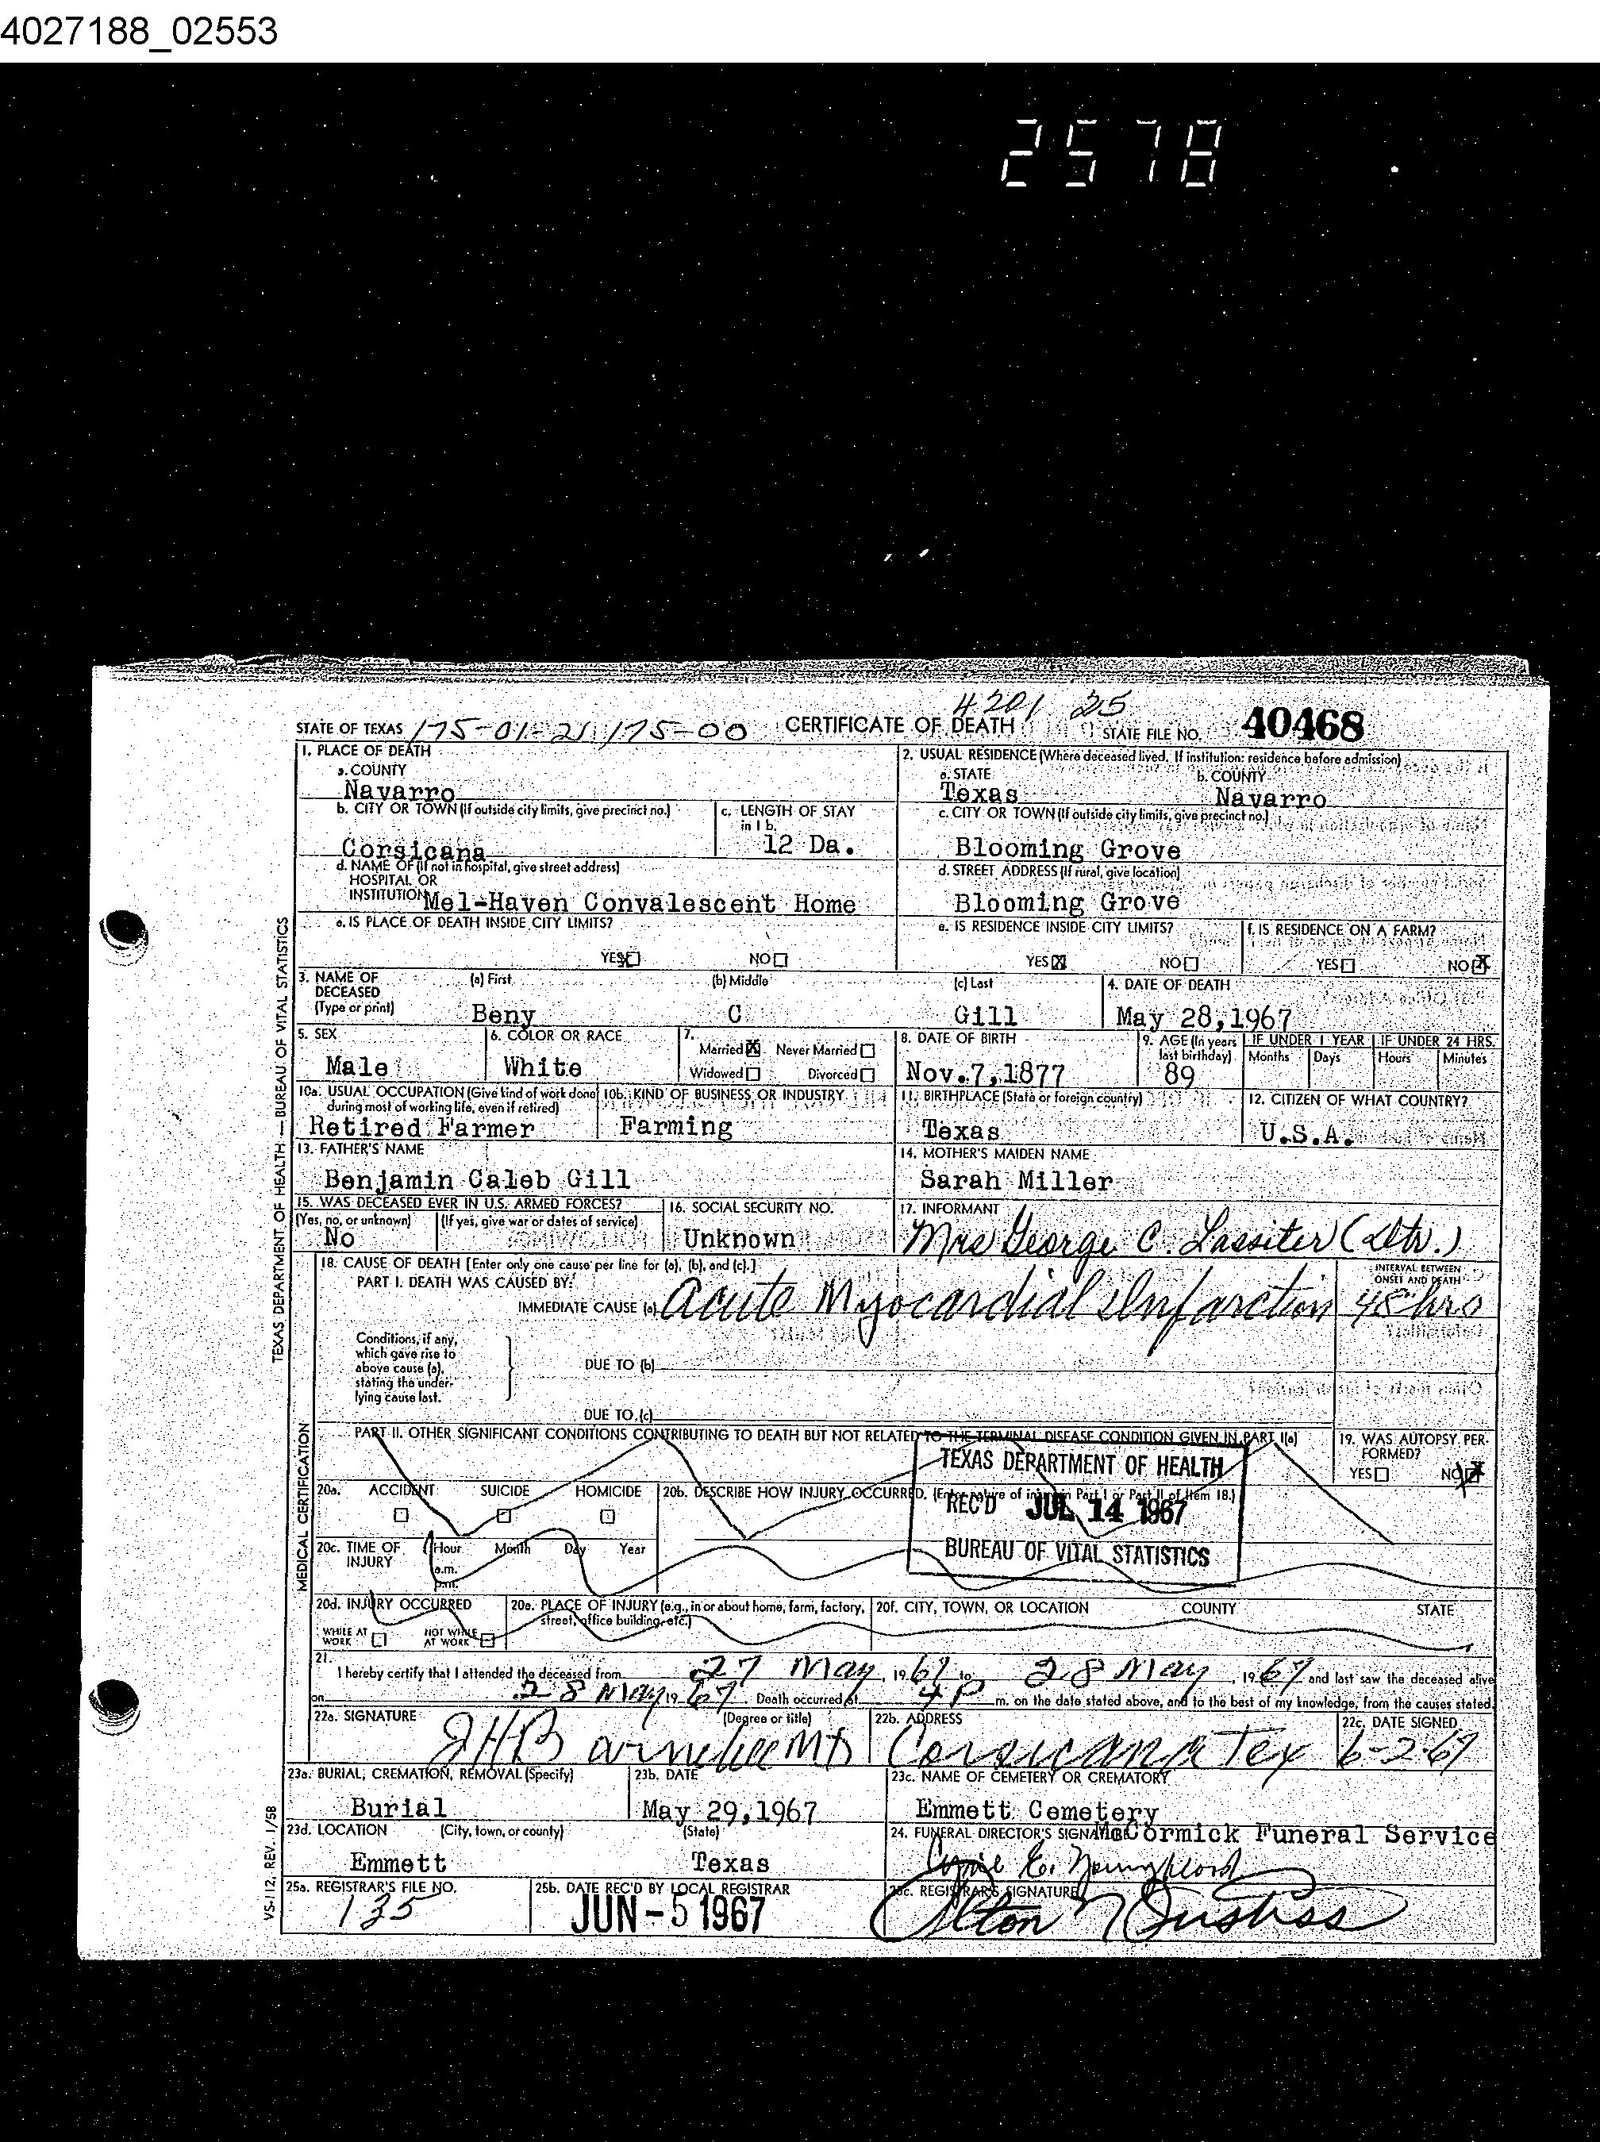 4027188_02553
2578
4201 25
STATE OF TEXAS 175-01-21 175-00 CERTIFICATE OF DEATH STATE FILE NO. 40468
1. PLACE OF DEATH
a. COUNTY
Navarro
2. USUAL RESIDENCE (Where deceased lived. If institution: residence before admission)
a. STATE b. COUNTY
Texas Navarro
b. CITY OR TOWN (If outside city limits, give precinct no.)
Corsicana
c. LENGTH OF STAY
in 1 b.
12 Da.
c. CITY OR TOWN (If outside city limits, give precinct no.)
Blooming Grove
d. NAME OF (If not in hospital, give street address)
HOSPITAL OR
INSTITUTION Mel-Haven Convalescent Home
d. STREET ADDRESS (If rural, give location)
Blooming Grove
e. IS PLACE OF DEATH INSIDE CITY LIMITS?
YES X NO
e. IS RESIDENCE INSIDE CITY LIMITS?
YES X NO
f. IS RESIDENCE ON A FARM?
YES NO X
3. NAME OF
DECEASED
(Type or print)
(a) First (b) Middle (c) Last
Beny C Gill
4. DATE OF DEATH
May 28,1967
5. SEX
Male
6. COLOR OR RACE
White
7.
Married X Never Married
Widowed Divorced
8. DATE OF BIRTH
Nov.7,1877
9. AGE (In years
last birthday)
89
IF UNDER 1 YEAR IF UNDER 24 HRS.
Months Days Hours Minutes
10a. USUAL OCCUPATION (Give kind of work done
during most of working life, even if retired)
Retired Farmer
10b. KIND OF BUSINESS OR INDUSTRY
Farming
11. BIRTHPLACE (State or foreign country)
Texas
12. CITIZEN OF WHAT COUNTRY?
U.S.A.
13. FATHER'S NAME
Benjamin Caleb Gill
14. MOTHER'S MAIDEN NAME
Sarah Miller
15. WAS DECEASED EVER IN U.S. ARMED FORCES?
(Yes, no, or unknown) (If yes, give war or dates of service)
No
16. SOCIAL SECURITY NO.
Unknown
17. INFORMANT
Mrs George C. Lassiter (Dtr.)
18. CAUSE OF DEATH [Enter only one cause per line for (a), (b), and (c).]
PART I. DEATH WAS CAUSED BY:
IMMEDIATE CAUSE (a) Acute Myocardial Infarction
INTERVAL BETWEEN
ONSET AND DEATH
48 hrs
Conditions, if any,
which gave rise to
above cause (a),
stating the under-
lying cause last.
DUE TO (b)
DUE TO (c)
PART II. OTHER SIGNIFICANT CONDITIONS CONTRIBUTING TO DEATH BUT NOT RELATED TO THE TERMINAL DISEASE CONDITION GIVEN IN PART I(a)
19. WAS AUTOPSY PER-
FORMED?
YES NO X
TEXAS DEPARTMENT OF HEALTH
REC'D JUL 14 1967
BUREAU OF VITAL STATISTICS
20a. ACCIDENT SUICIDE HOMICIDE
20b. DESCRIBE HOW INJURY OCCURRED. (Enter nature of injury in Part I or Part II of Item 18.)
20c. TIME OF
INJURY
Hour Month Day Year
a.m.
p.m.
20d. INJURY OCCURRED
WHILE AT
WORK
NOT WHILE
AT WORK
20e. PLACE OF INJURY (e.g., in or about home, farm, factory,
street, office building, etc.)
20f. CITY, TOWN, OR LOCATION COUNTY STATE
21.
I hereby certify that I attended the deceased from 27 May, 1967 to 28 May, 1967 and last saw the deceased alive
on 28 May 1967. Death occurred at 4 P m. on the date stated above, and to the best of my knowledge, from the causes stated.
22a. SIGNATURE (Degree or title)
JHBarnebee MD
22b. ADDRESS
Corsicana Tex
22c. DATE SIGNED
6-2-67
23a. BURIAL, CREMATION, REMOVAL (Specify)
Burial
23b. DATE
May 29,1967
23c. NAME OF CEMETERY OR CREMATORY
Emmett Cemetery
23d. LOCATION (City, town, or county) (State)
Emmett Texas
24. FUNERAL DIRECTOR'S SIGNATURE
McCormick Funeral Service
25a. REGISTRAR'S FILE NO.
135
25b. DATE REC'D BY LOCAL REGISTRAR
JUN-5 1967
25c. REGISTRAR'S SIGNATURE
TEXAS DEPARTMENT OF HEALTH — BUREAU OF VITAL STATISTICS
MEDICAL CERTIFICATION
VS-112, REV. 1/58